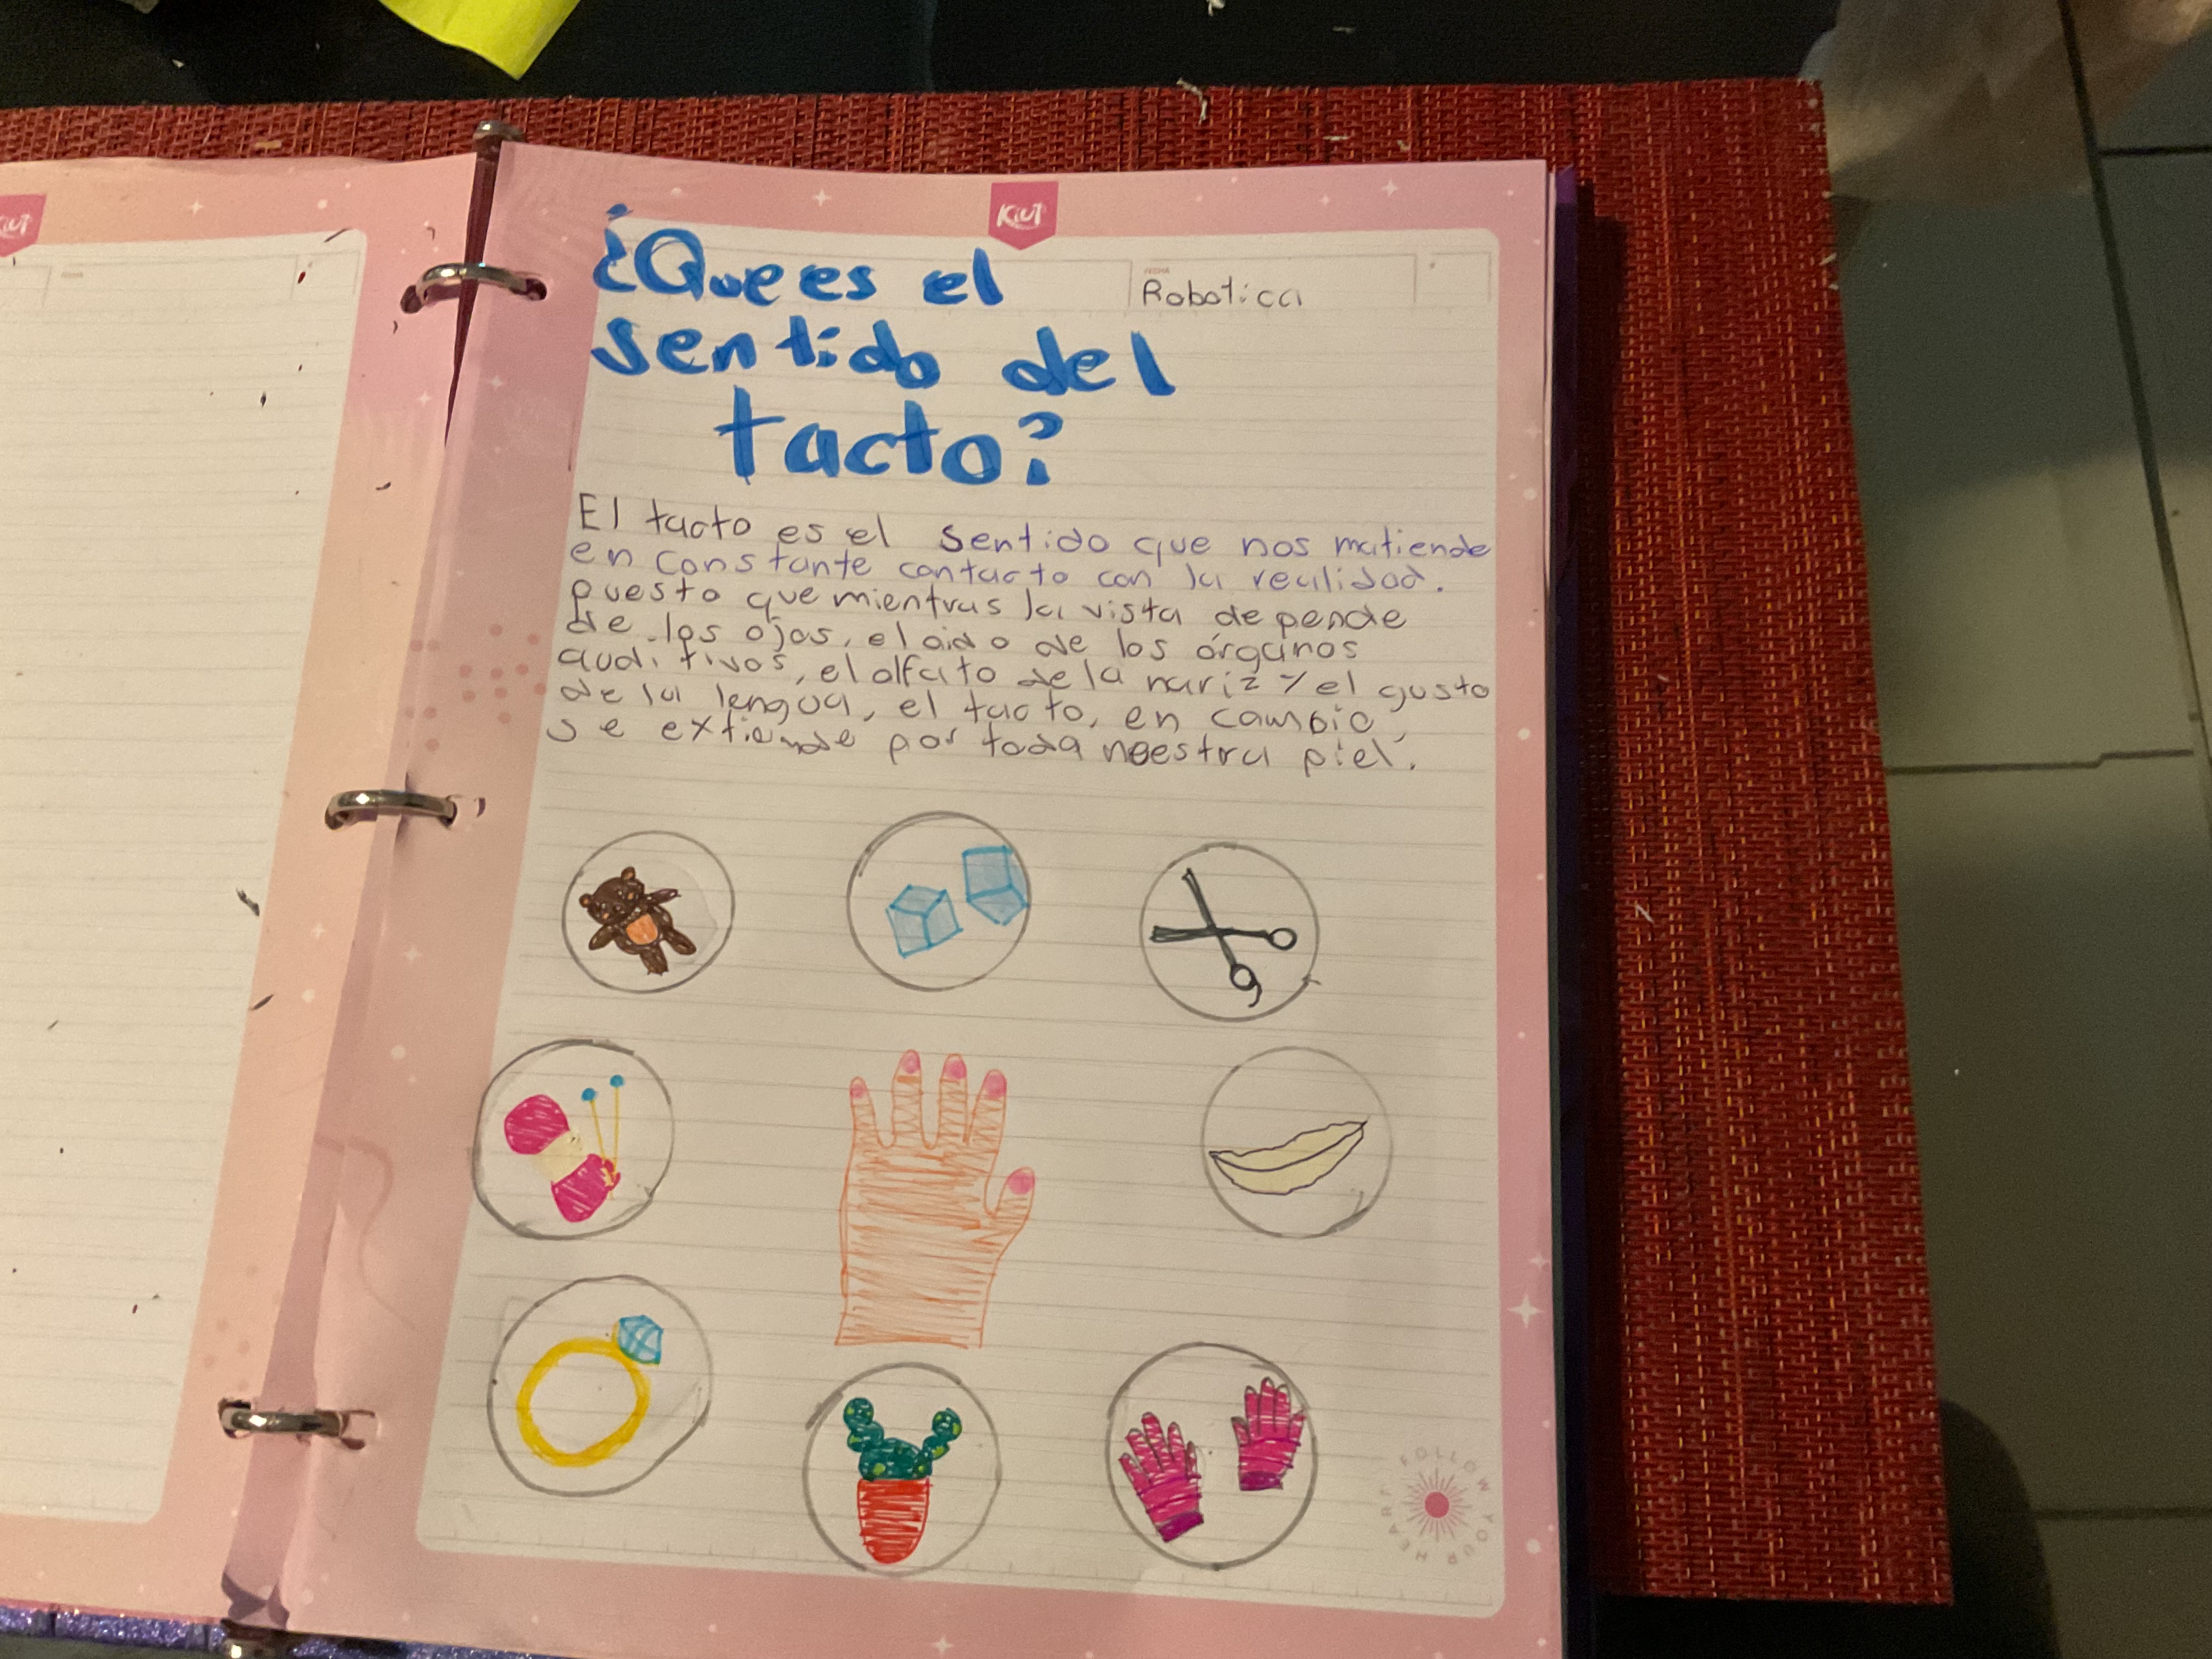 Kiut
Kiut
FECHA
FECHA
Robotica
¿Que es el
sentido del
tacto?
El tacto es el sentido que nos matiende
en constante contacto con la realidad.
puesto que mientras la vista depende
de los ojos, el oido de los órganos
auditivos, el olfato de la nariz y el gusto
de la lengua, el tacto, en cambio,
se extiende por toda neestra piel.
FOLLOW YOUR HEART